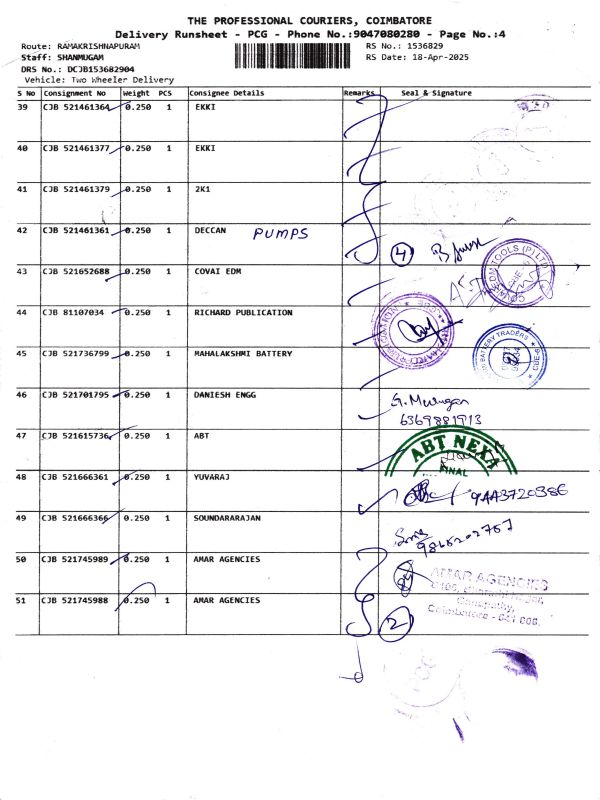 THE PROFESSIONAL COURIERS, COIMBATORE
Delivery Runsheet - PCG - Phone No.:9047080280 - Page No.:4
Route: RAMAKRISHNAPURAM
RS No.: 1536829
Staff: SHANMUGAM
RS Date: 18-Apr-2025
DRS No.: DCJB153682904
Vehicle: Two Wheeler Delivery
S No Consignment No Weight PCS Consignee Details Remarks Seal & Signature
39 CJB 521461364 0.250 1 EKKI
40 CJB 521461377 0.250 1 EKKI
41 CJB 521461379 0.250 1 2K1
42 CJB 521461361 0.250 1 DECCAN PUMPS
4
43 CJB 521652688 0.250 1 COVAI EDM
TOOLS (P) LTD
44 CJB 81107034 0.250 1 RICHARD PUBLICATION
45 CJB 521736799 0.250 1 MAHALAKSHMI BATTERY
BATTERY TRADERS
46 CJB 521701795 0.250 1 DANIESH ENGG
G. Murugan
6369881913
47 CJB 521615736 0.250 1 ABT
ABT NEXA
FINAL
48 CJB 521666361 0.250 1 YUVARAJ
9443720386
49 CJB 521666366 0.250 1 SOUNDARARAJAN
50 CJB 521745989 0.250 1 AMAR AGENCIES
AMAR AGENCIES
Ganapathy,
Coimbatore - 641 006.
51 CJB 521745988 0.250 1 AMAR AGENCIES
2
PCG